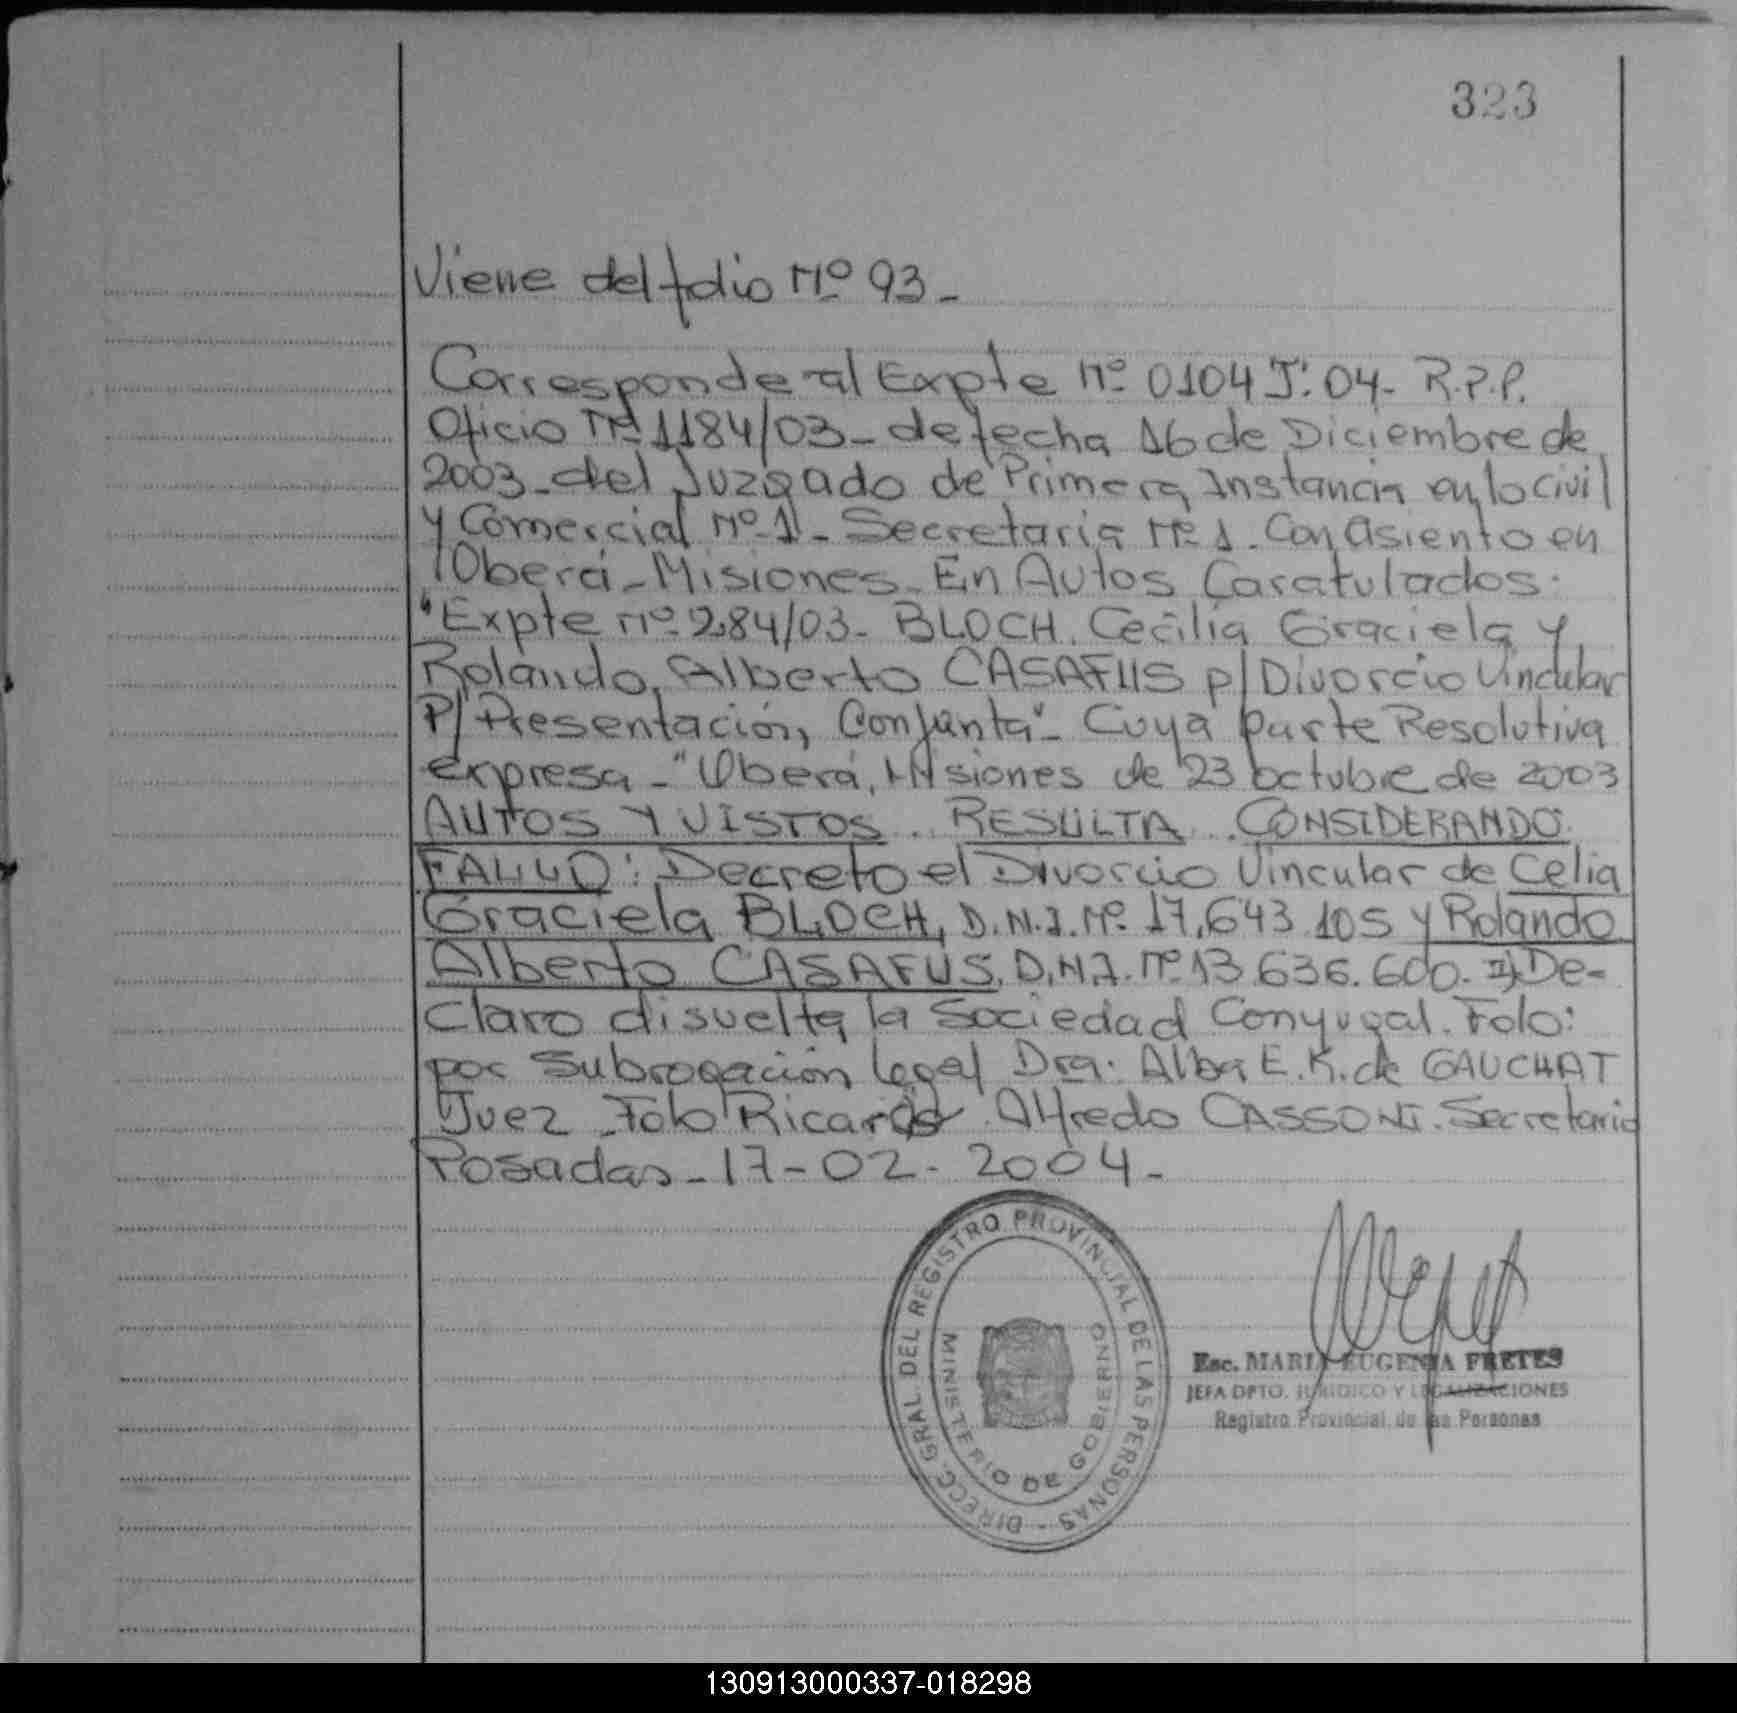 323
Viene del folio Nº 93-
Corresponde al Expte Nº 0104 J: 04- R.P.P.
Oficio Nº 1184/03- de fecha 16 de Diciembre de
2003- del Juzgado de Primera Instancia en lo Civil
y Comercial Nº 1- Secretaria Nº 1. Con asiento en
Oberá- Misiones- En Autos Caratulados:
"Expte nº 284/03- BLOCH. Cecilia Graciela y
Rolando, Alberto CASAFUS p/ Divorcio Vincular
P/ Presentación Conjunta"- Cuya parte Resolutiva
expresa- "Oberá, Misiones de 23 octubre de 2003
AUTOS Y VISTOS.. RESULTA.. CONSIDERANDO:
FALLO: Decreto el Divorcio Vincular de Celia
Graciela BLOCH, D.N.I. Nº 17.643.105 y Rolando
Alberto CASAFUS, D.N.I. Nº 13.636.600. II) De-
claro disuelta la Sociedad Conyugal. Fdo:
por Subrogación legal Dra: Alba E. K. de GAUCHAT
Juez- Fdo Ricardo Alfredo CASSONI. Secretario
Posadas- 17-02-2004-
DIRECC. GRAL. DEL REGISTRO PROVINCIAL DE LAS PERSONAS -
MINISTERIO DE GOBIERNO
Esc. MARIA EUGENIA FRETES
JEFA DPTO. JURIDICO Y LEGALIZACIONES
Registro Provincial de las Personas
130913000337-018298